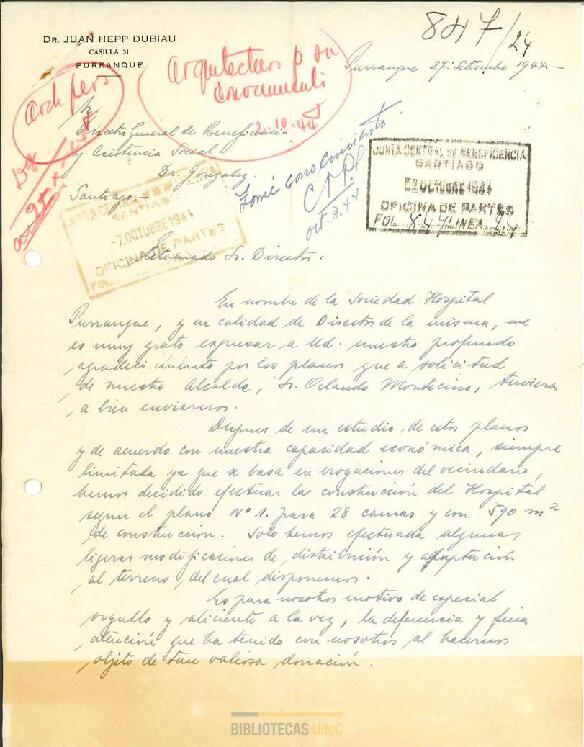 DR. JUAN HEPP DUBIAU
CASILLA 31
PURRANQUE
847/24
Purranque 27. Setiembre 1944.-
Arquitectura p su
conocimiento
2.10.44
Director General de Beneficencia
y Asistencia Social.
Dr. Gonzalez.
Santiago.-
Tomé conocimiento
oct. 9. 44
JUNTA CENTRAL DE BENEFICENCIA
SANTIAGO
2 OCTUBRE 1944
OFICINA DE PARTES
FOL. 847 LINEA 24
SANTIAGO
-7. OCTUBRE 1944
OFICINA DE PARTES
FOL.
Estimado Sr. Director.
En nombre de la Sociedad Hospital
Purranque, y en calidad de Director de la misma, me
es muy grato expresar a Ud. nuestro profundo
agradecimiento por los planos que a solicitud
de nuestro Alcalde, Sr. Orlando Montecinos, tuviera
a bien enviarnos.
Despues de un estudio de estos planos
y de acuerdo con nuestra capacidad económica, siempre
limitada ya que se basa en erogaciones del vecindario,
hemos decidido efectuar la construcción del Hospital
segun el plano Nº 1. para 28 camas y con 590 m²
de construcción. Solo hemos efectuado algunas
ligeras modificaciones de distribución y adaptación
al terreno, del cual disponemos.
Es para nosotros motivo de especial
orgullo y aliciente a la vez, la deferencia y fina
atención que ha tenido con nosotros al hacernos
objeto de tan valiosa donación.
BIBLIOTECAS UdeC